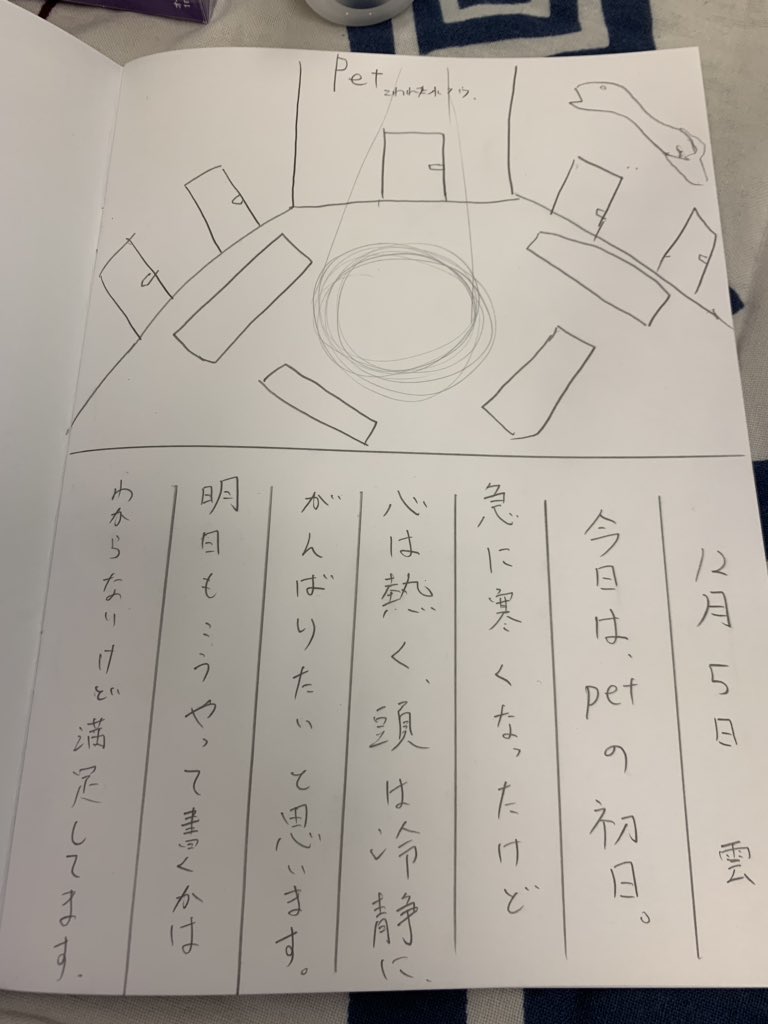 Pet
12月5日 雲
今日は、petの初日。
急に寒くなったけど
心は熱く、頭は冷静に、
がんばりたいと思います。
明日もこうやって書くかは
わからないけど満足してます.